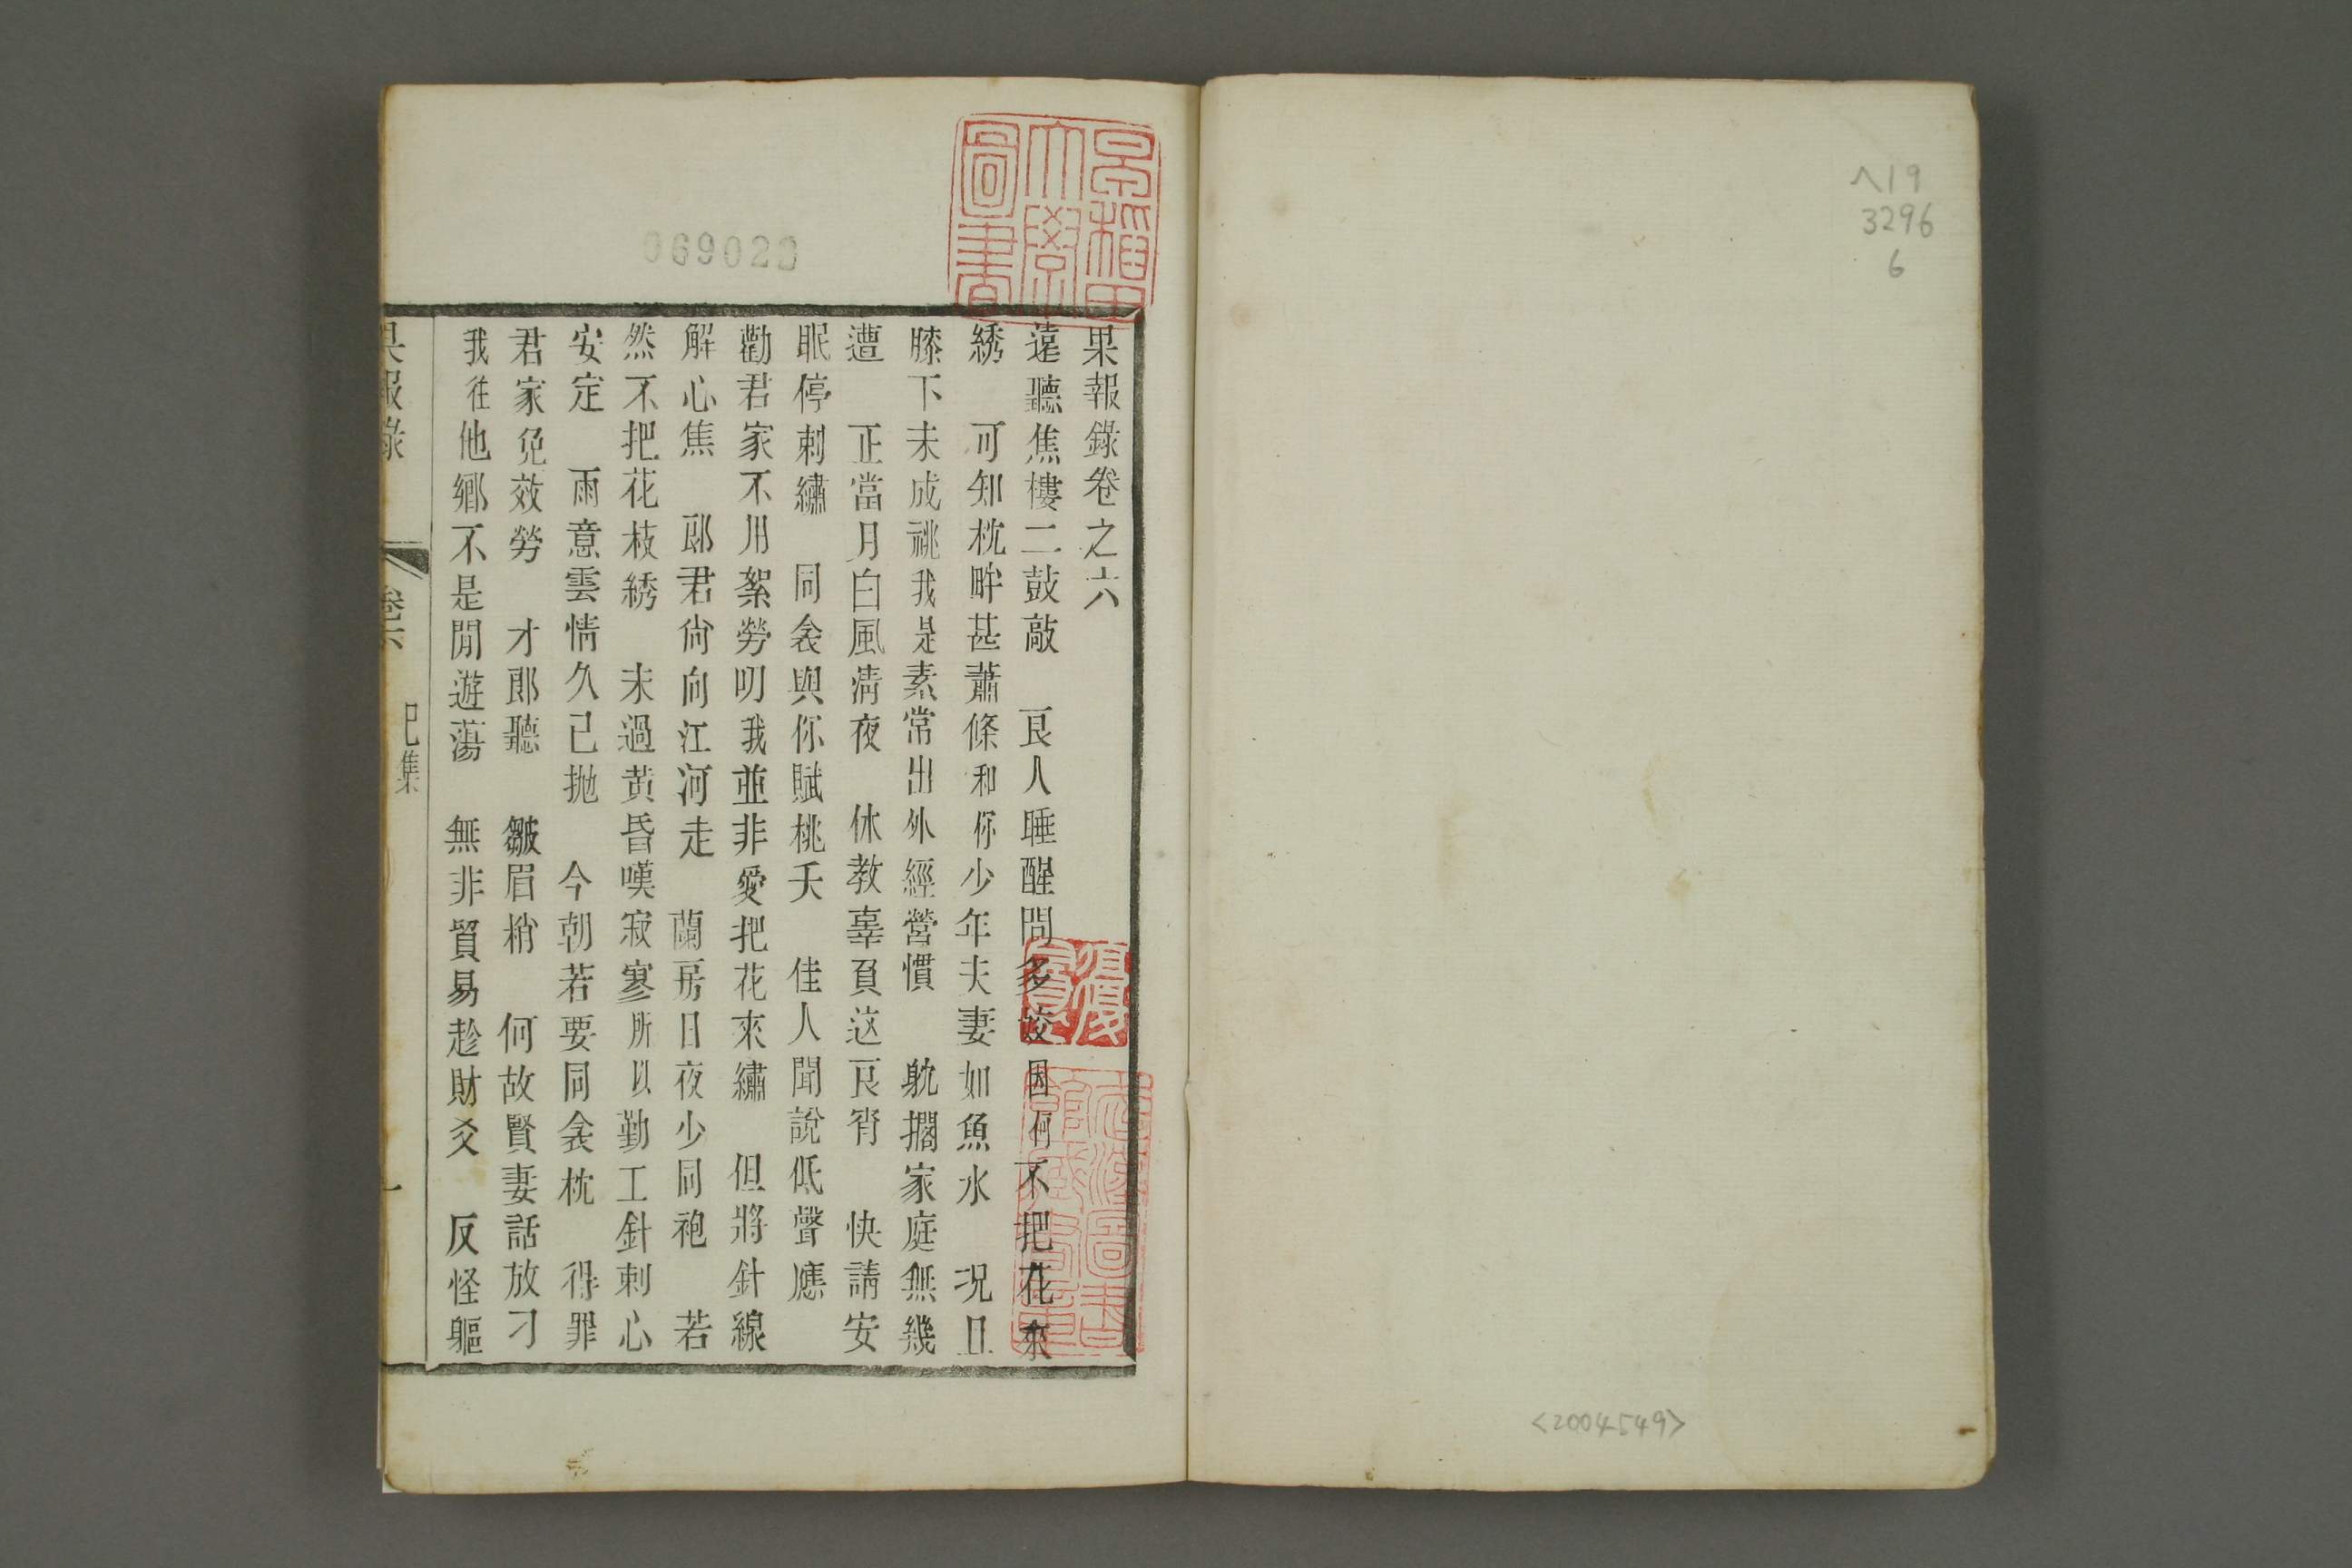 ヘ19
3296
6
<2004549>
早稲田
大學
圖書
06902
果報錄卷之六
遠聽焦樓二鼓敲　良人睡醒問多姣因何不把花來
綉　可知枕畔甚蕭條和你少年夫妻如魚水　况且
膝下未成祧我是素常出外經營慣　躭擱家庭無幾
遭　正當月白風淸夜　休教辜負這良宵　快請安
眠停刺繡　同衾與你賦桃夭　佳人聞說低聲應
勸君家不用絮勞叨我並非愛把花來繡　但將針線
解心焦　郎君尙向江河走　蘭房日夜少同袍　若
然不把花枝綉　未過黃昏嘆寂寥所以勤工針刺心
安定　雨意雲情久已拋　今朝若要同衾枕　得罪
君家免效勞　才郎聽　皺眉梢　何故賢妻話放刁
我往他鄉不是閒遊蕩　無非貿易趁財爻　反怪軀
果報錄　卷六　巳集　一